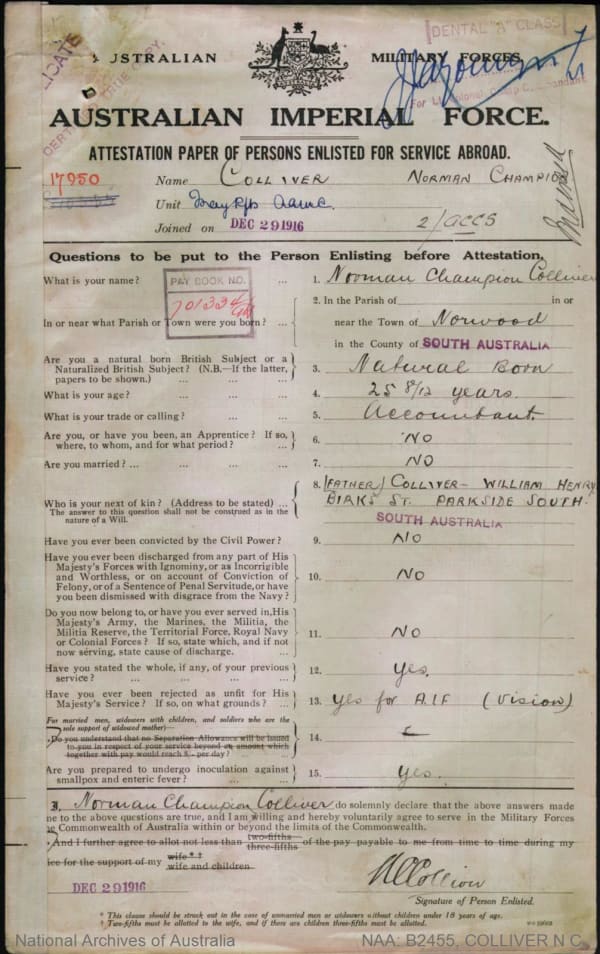 DENTAL "A" CLASS
AUSTRALIAN MILITARY FORCES.
AUSTRALIAN IMPERIAL FORCE.
ATTESTATION PAPER OF PERSONS ENLISTED FOR SERVICE ABROAD.
17950
Name COLLIVER NORMAN CHAMPION
Unit
Joined on DEC 29 1916
2/ACCS
Questions to be put to the Person Enlisting before Attestation.
What is your name? ... ... 1. Norman Champion Colliver
PAY BOOK NO.
In or near what Parish or Town were you born? ... 2. In the Parish of in or
near the Town of Norwood
in the County of SOUTH AUSTRALIA
Are you a natural born British Subject or a
Naturalized British Subject? (N.B.—If the latter,
papers to be shown.) ... ... ... 3. Natural Born
What is your age? ... ... ... 4. 25 8/12 years.
What is your trade or calling? ... ... ... 5. Accountant.
Are you, or have you been, an Apprentice? If so,
where, to whom, and for what period? ... ... 6. NO
Are you married? ... ... ... ... 7. NO
Who is your next of kin? (Address to be stated) ...
The answer to this question shall not be construed as in the
nature of a Will.
8. (FATHER) COLLIVER - WILLIAM HENRY
BIRKS ST. PARKSIDE SOUTH.
SOUTH AUSTRALIA
Have you ever been convicted by the Civil Power? ... 9. NO
Have you ever been discharged from any part of His
Majesty's Forces with Ignominy, or as Incorrigible
and Worthless, or on account of Conviction of
Felony, or of a Sentence of Penal Servitude, or have
you been dismissed with disgrace from the Navy?
10. NO
Do you now belong to, or have you ever served in, His
Majesty's Army, the Marines, the Militia, the
Militia Reserve, the Territorial Force, Royal Navy
or Colonial Forces? If so, state which, and if not
now serving, state cause of discharge. ...
11. NO
Have you stated the whole, if any, of your previous
service? ... ... ... ... 12. Yes.
Have you ever been rejected as unfit for His
Majesty's Service? If so, on what grounds? ... 13. Yes for AIF (Vision)
For married men, widowers with children, and soldiers who are the
sole support of widowed mother—
Do you understand that no Separation Allowance will be issued
to you in respect of your service beyond an amount which
together with pay would reach 8/- per day? ...
14.
Are you prepared to undergo inoculation against
smallpox and enteric fever? ... ... 15. Yes.
I, Norman Champion Colliver do solemnly declare that the above answers made
me to the above questions are true, and I am willing and hereby voluntarily agree to serve in the Military Forces
the Commonwealth of Australia within or beyond the limits of the Commonwealth.
And I further agree to allot not less than two-fifths three-fifths of the pay payable to me from time to time during my
ice for the support of my wife * † wife and children.
DEC 29 1916
NC Colliver
Signature of Person Enlisted.
* This clause should be struck out in the case of unmarried men or widowers without children under 18 years of age.
† Two-fifths must be allotted to the wife, and if there are children three-fifths must be allotted.
National Archives of Australia NAA: B2455, COLLIVER N C